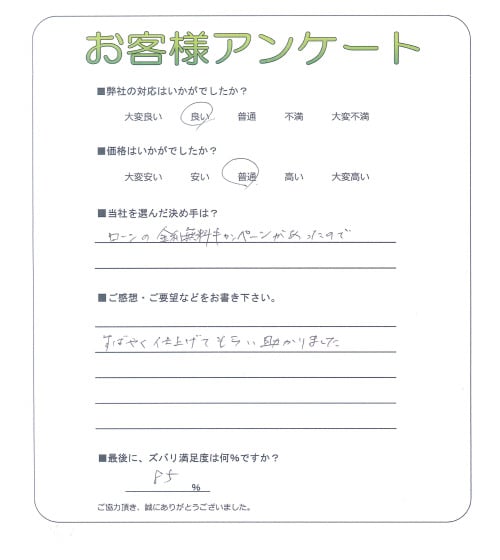 お客様アンケート
■弊社の対応はいかがでしたか？
大変良い 良い 普通 不満 大変不満
■価格はいかがでしたか？
大変安い 安い 普通 高い 大変高い
■当社を選んだ決め手は？
ローンの金利無料キャンペーンがあったので
■ご感想・ご要望などをお書き下さい。
すばやく仕上げてもらい助かりました
■最後に、ズバリ満足度は何%ですか？
85 %
ご協力頂き、誠にありがとうございました。